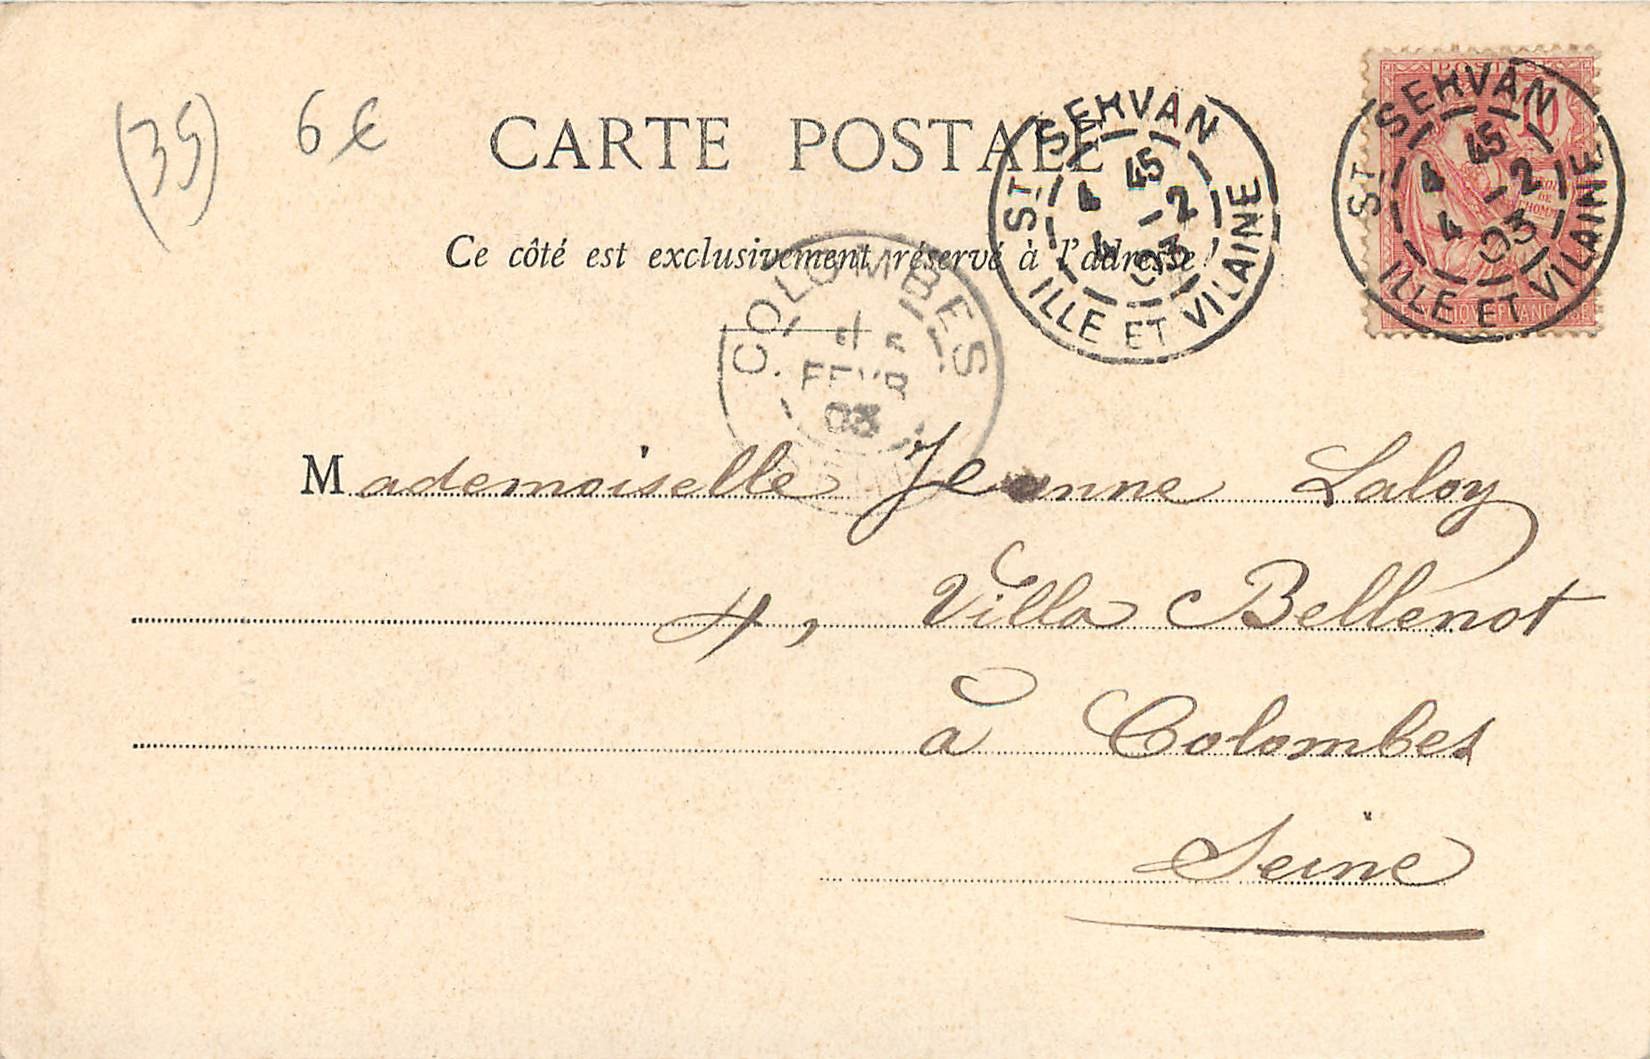 (35) 6€
CARTE POSTALE
Ce côté est exclusivement réservé à l'adresse
ST SERVAN
4 45
4 -2
03
ILLE ET VILAINE
POSTES
10
ST SERVAN
4 45
4 -2
03
ILLE ET VILAINE
COLOMBES
FEVR
03
Mademoiselle Jeanne Laloy
4, Villa Bellenot
à Colombes
Seine